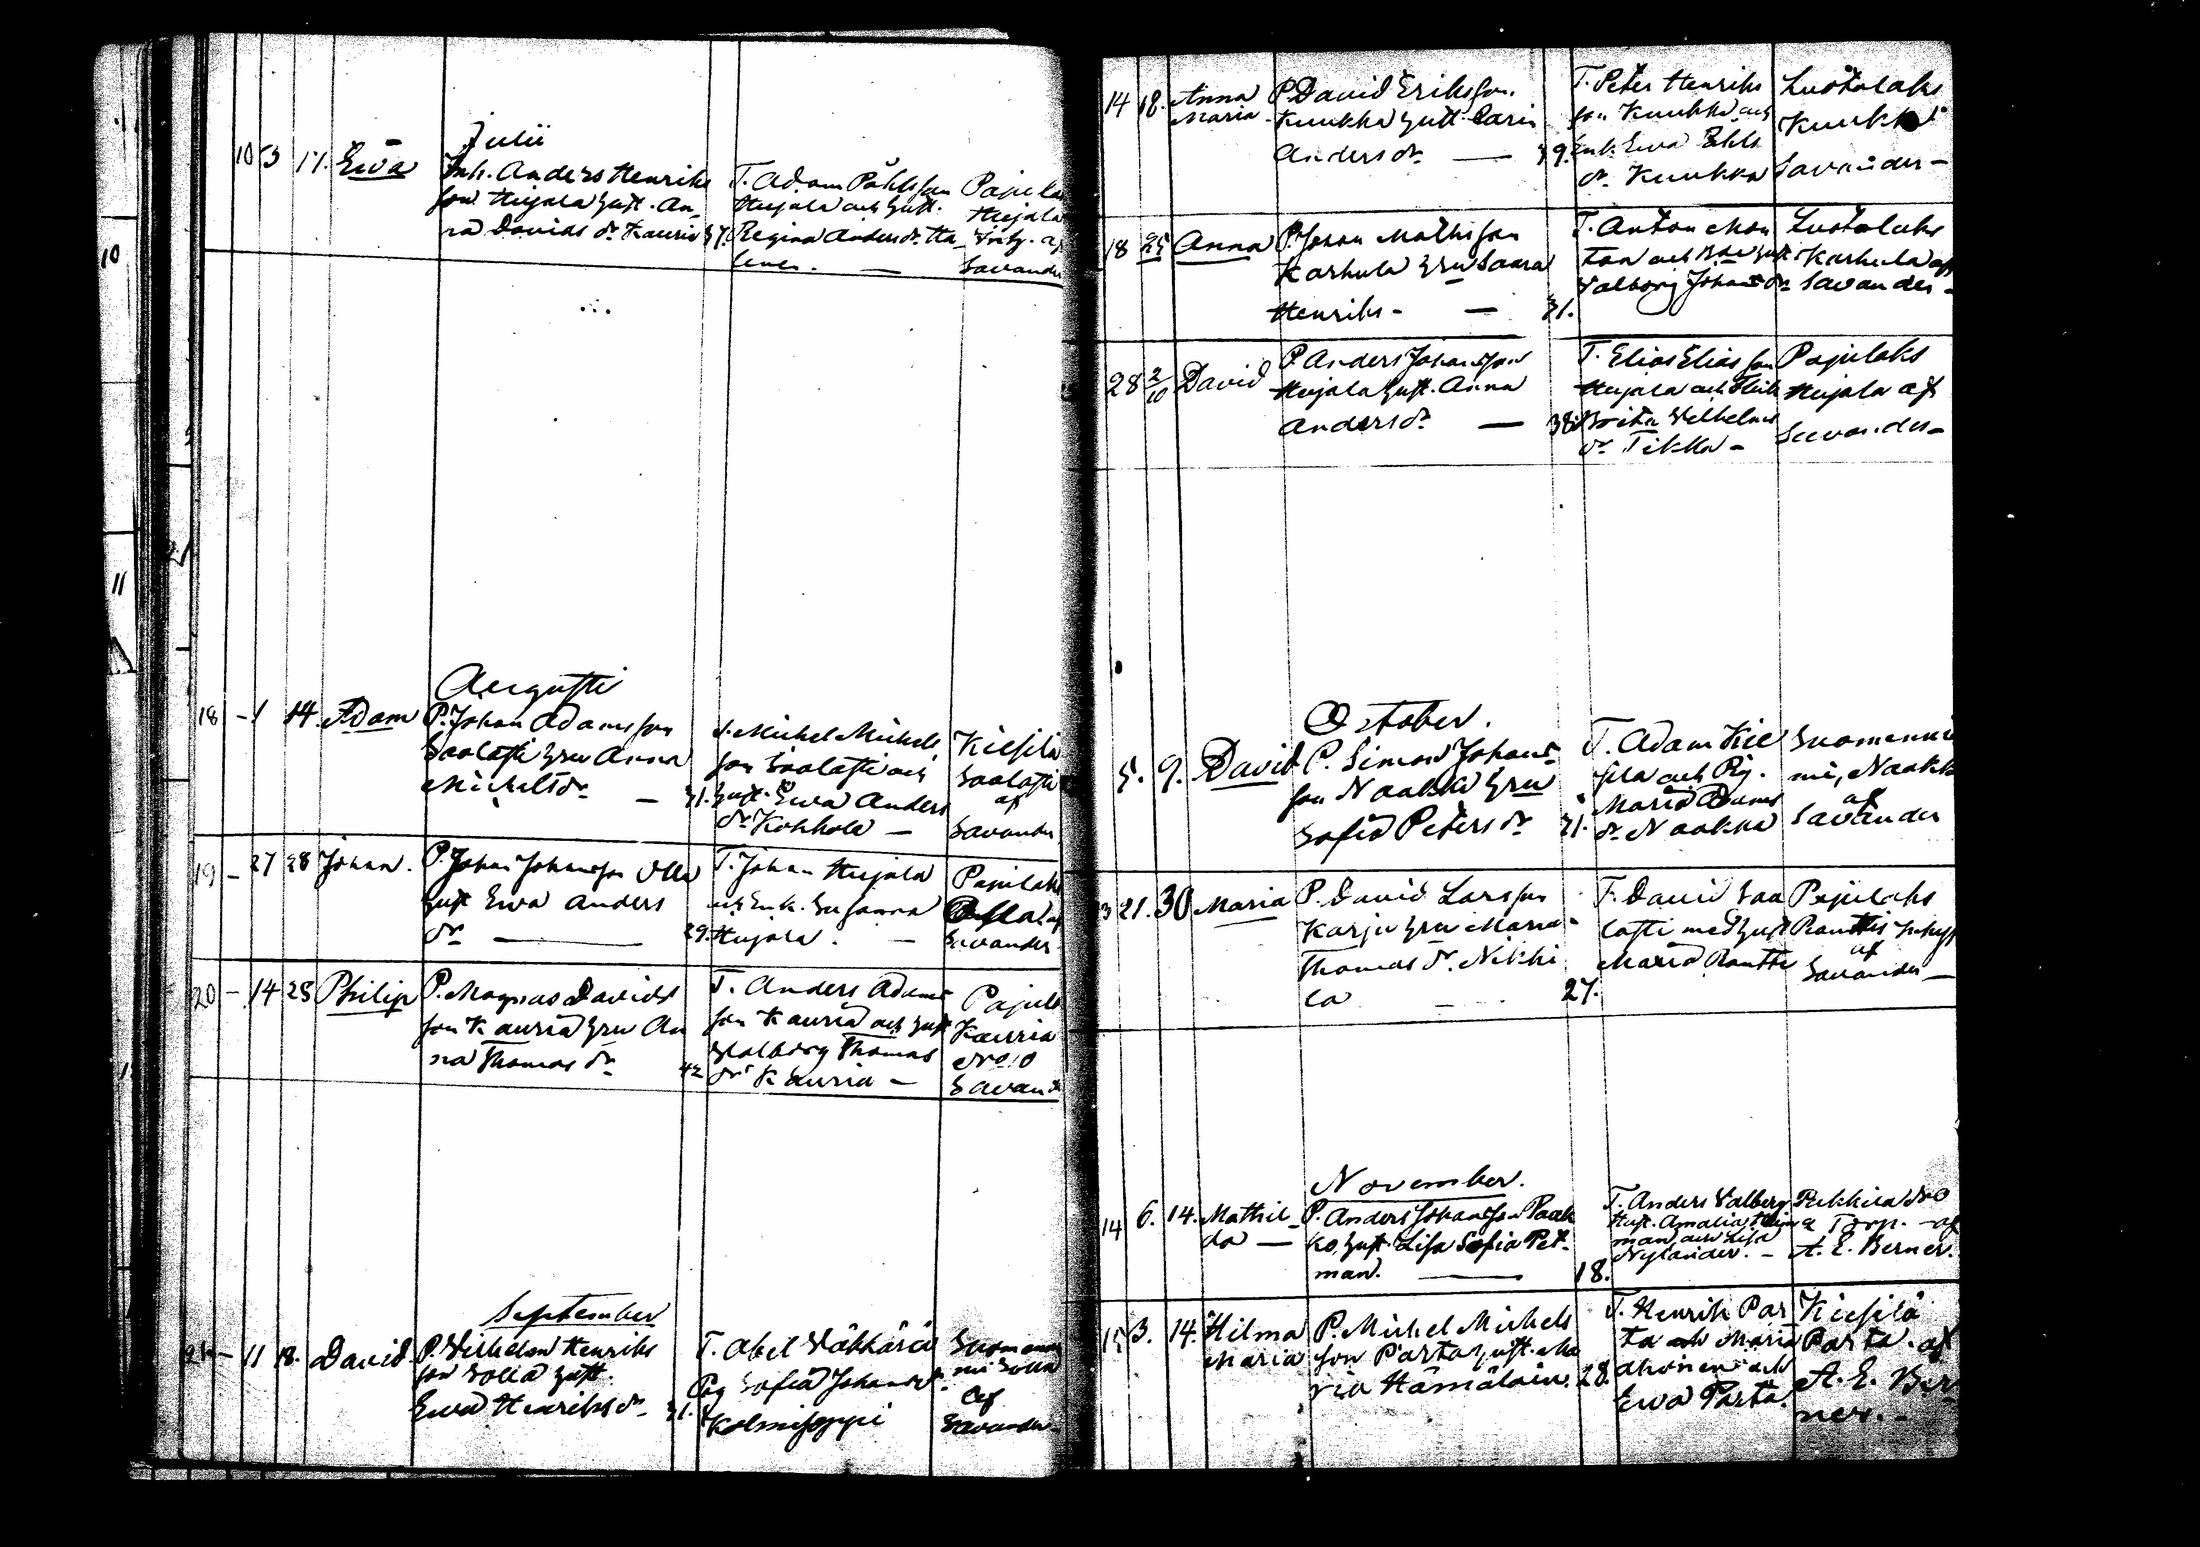 Julii
10 3 17. Ewa
Inh. Anders Henriks
son Hujala hust. An
na Davids dr Kauria 37.
T. Adam Påhlsson
Hujala och hust.
Regina Anders dr Ha
Pajula
Hujala
Savander
10
11
Augusti
18 - 1 14. Adam
P. Johan Adamsson
Saolatti hru Anna
Michelsdr — 31.
T. Michel Michels
son Saolatti och
hust. Ewa Anders
dr Kokkola —
Kiesilä
Saolatti
af
Savander
19 - 27 28 Johan.
P. Johan Johansson Olla
hust Ewa Anders
dr — 29.
T. Johan Hujala
och Enk. Susanna
Hujala. —
Pajulaks
Olla af
Savander
20 - 14 25 Philip
P. Magnus Davids
son Kauria hru An
na Thomas dr 42
T. Anders Adams
son Kauria och hust
Walborg Thomas
dr Kauria —
Pajula
Kauria
No 10
Savand
September
21 - 11 18. David.
P. Wilhelm Henriks
son Solla hust.
Ewa Henriksdr 31.
T. Abel Wäkkärä
Pig Sofia Johansdr
Kolmisoppi
Suomenni
mi Solla
af
Savander
14 18. Anna
Maria
P. David Eriksson
Kuukka hust. Carin
Andersdr — 39.
T. Peter Henriks
son Kuukka och
Enk. Ewa
dr Kuukka
Luotolaks
Kuukka
Savander -
18 25 Anna
P. Johan Mathsson
Karhula hru Saara
Henriks - — 31.
T. Anton Mon
ton och hust
Walborg Johansdr
Luotolaks
Karhula af
Savander -
28 2/10 David
P. Anders Johansson
Hujala hust. Anna
Andersdr — 38.
T. Elias Elias son
Hujala och
Brita Wilhelms
dr Tikka -
Pajulaks
Hujala af
Savander -
October.
5. 9. David
P. Simon Johans
son Naakka hru
Sofia Petersdr 31.
T. Adam Kie
silä och Pig.
Maria Adams
dr Naakka
Suomenni
mi, Naakk
af
Savander
13 21. 30 Maria
P. David Larsson
Karju hru Maria
Thomas dr. Nikki
la 27.
T. David Saa
lasti med hust
Maria Rantti
Pajulaks
Rantti
af
Savander —
November.
14 6. 14. Mathil
da —
P. Anders Johansson Paak
ko hust. Lisa Sofia Pet-
man. — 18.
T. Anders Walberg
Hust. Amalia
man och Lisa
Nylander. -
Pekkila No
2 Torp. af
A. E. Berner.
15 3. 14. Hilma
Maria
P. Michel Michels
son Parta hust. Ma
ria Hämäläin. 28.
T. Henrik Par
ta och Maria
Ahonen och
Ewa Parta.
Kiesilä
Parta. af
A. E. Ber
ner. -